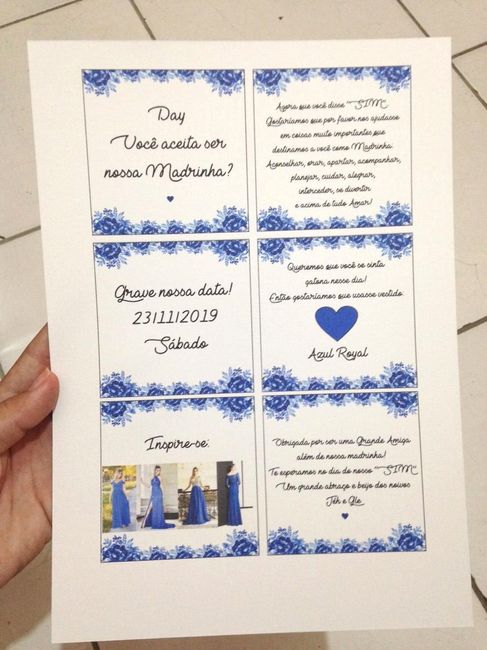 Day
Você aceita ser
nossa Madrinha?
Agora que você disse "SIM"
Gostaríamos que por favor nos ajudasse
em coisas muito importantes que
destinamos a você como Madrinha:
Aconselhar, orar, apartar, acompanhar,
planejar, cuidar, alegrar,
interceder, se divertir
e acima de tudo Amar!
Grave nossa data!
23/11/2019
Sábado
Queremos que você se sinta
gatona nesse dia!
Então gostaríamos que usasse vestido:
Azul Royal
Inspire-se:
Obrigada por ser uma Grande Amiga
além de nossa madrinha!
Te esperamos no dia do nosso "SIM"
Um grande abraço e beijo dos noivos
Jéh e Gle